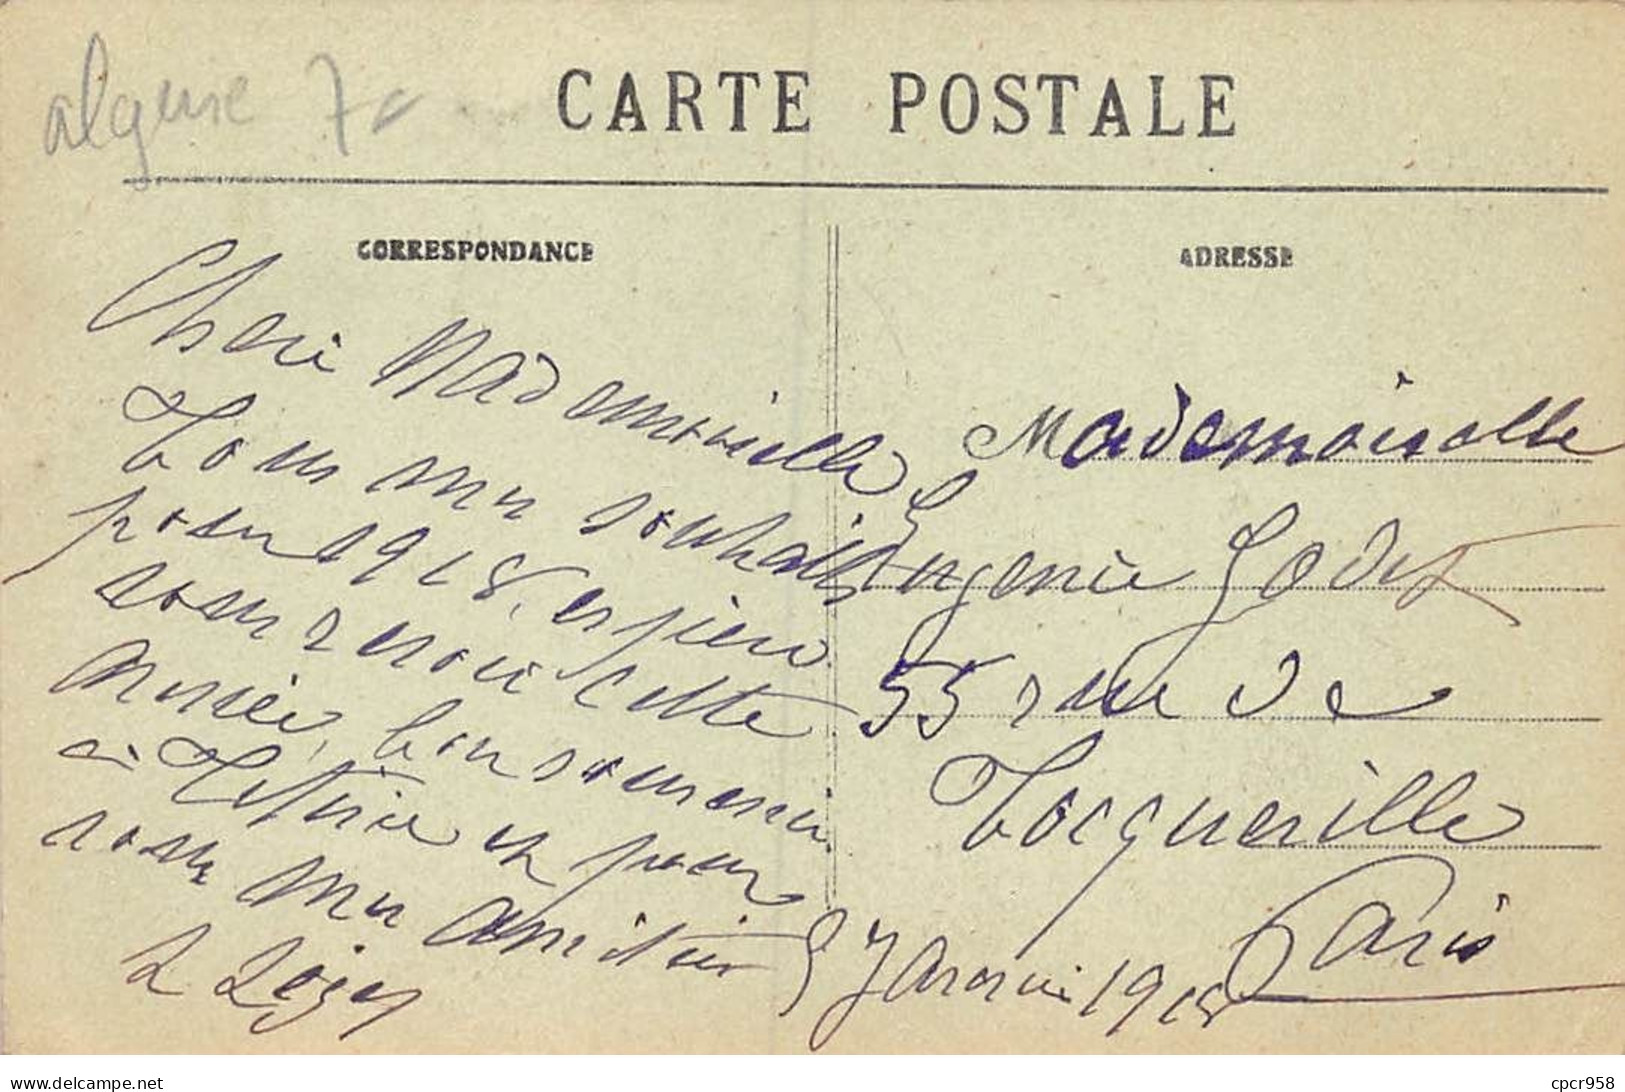 algerie 70
CARTE POSTALE
CORRESPONDANCE
ADRESSE
Cheri Mademoiselle
Tous mes souhaits
pour 1918, espère
vous revoir cette
Année, bon souvenir
à et pour
vous mes amitiés
L
9 Janvier 1918
Mademoiselle
Eugenie Godet
55 rue de
Tocqueville
Paris
delcampe.net
cpcr958